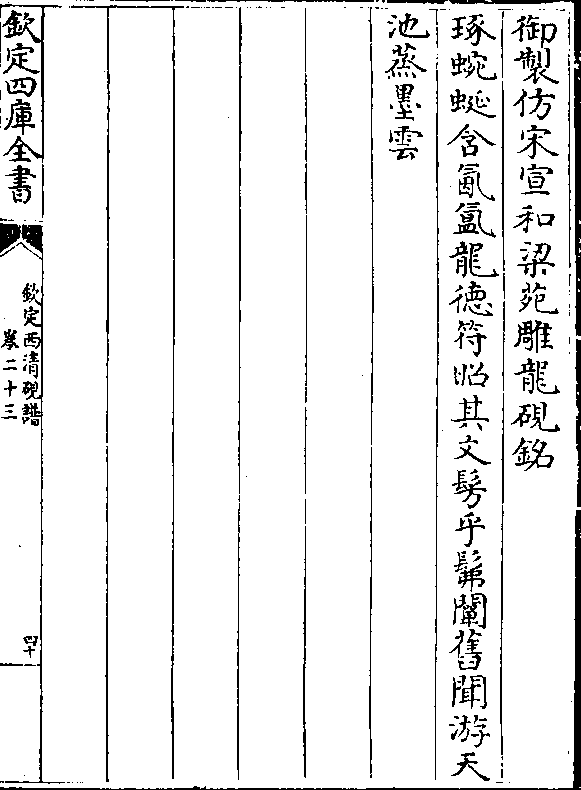 御製仿宋宣和梁苑雕龍硯銘
琢蜿蜒含氤氲龍德符昭其文髣乎髴闡舊聞游天
池蒸墨雲
欽定四庫全書
欽定西清硯譜
卷二十三
四十